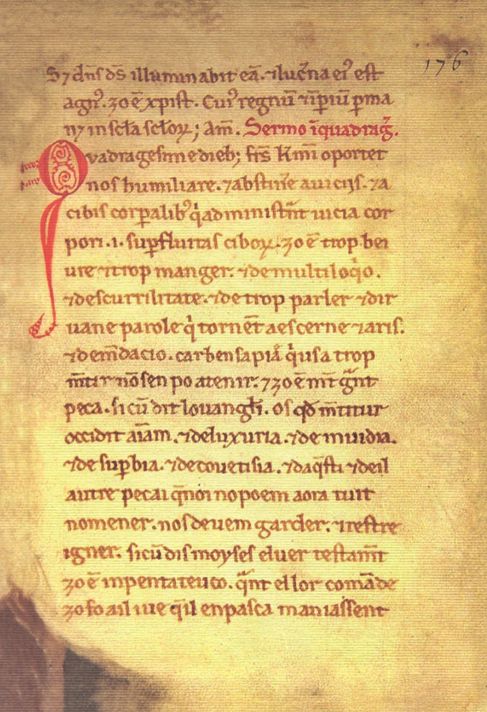 176
S; dn̄s d̄s illuminabit eā. ⁊ luc̄na ei᷒ est
agn᷒. zo ē xp̄ist. Cui᷒ regnū ⁊ īpiū ꝑma
n; in sc̄la sc̄loꝝ; Am̄. Sermo ī quadraḡ.
Quadragesime dieb; fr̄s k̄mi oportet
nos humiliare. ⁊ abstin̄e a uiciis. ⁊ a
cibis corꝑalib᷒ q̄ administn̄t uicia cor
pori. .i. suꝑfluitas ciboꝝ. zo ē trop bei
ure ⁊ trop manger. ⁊ de multiloqo.
⁊ de scurrilitate. ⁊ de trop parler ⁊ dir
uane parole q̄ tornēt a escerne ⁊ a ris.
⁊ de m̄dacio. car ben sapiā q̄ i usa trop
m̄tir nō sen po atenir. ⁊ zo ē m̄t gn̄t
peca. sicū dit lo uangl̄i. Os qd m̄titur
occidit aīam. ⁊ de luxuria. ⁊ de inuidia.
⁊ de suꝑbia. ⁊ de couetisia. ⁊ daq̄sti ⁊ deil
autre pecai q̄ noi no poem aora tuit
nomener. nos deuem garder. ⁊ restre
igner. sicū dis moyses el uer testam̄t
zo ē in pentateuco. qn̄t el lor comāde
zo fo a il iue q̄ il en pasca maniassent